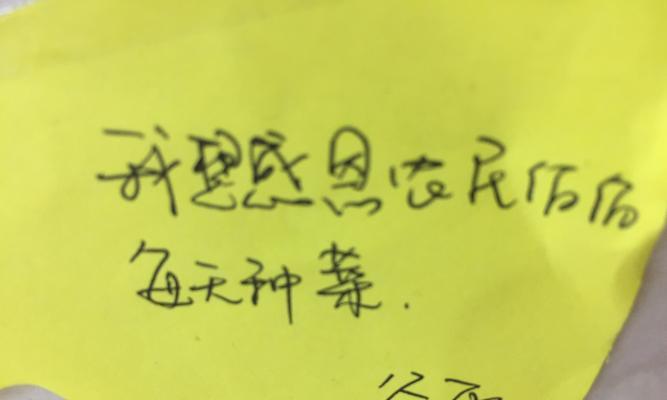 我想感恩农民伯伯
每天种菜.